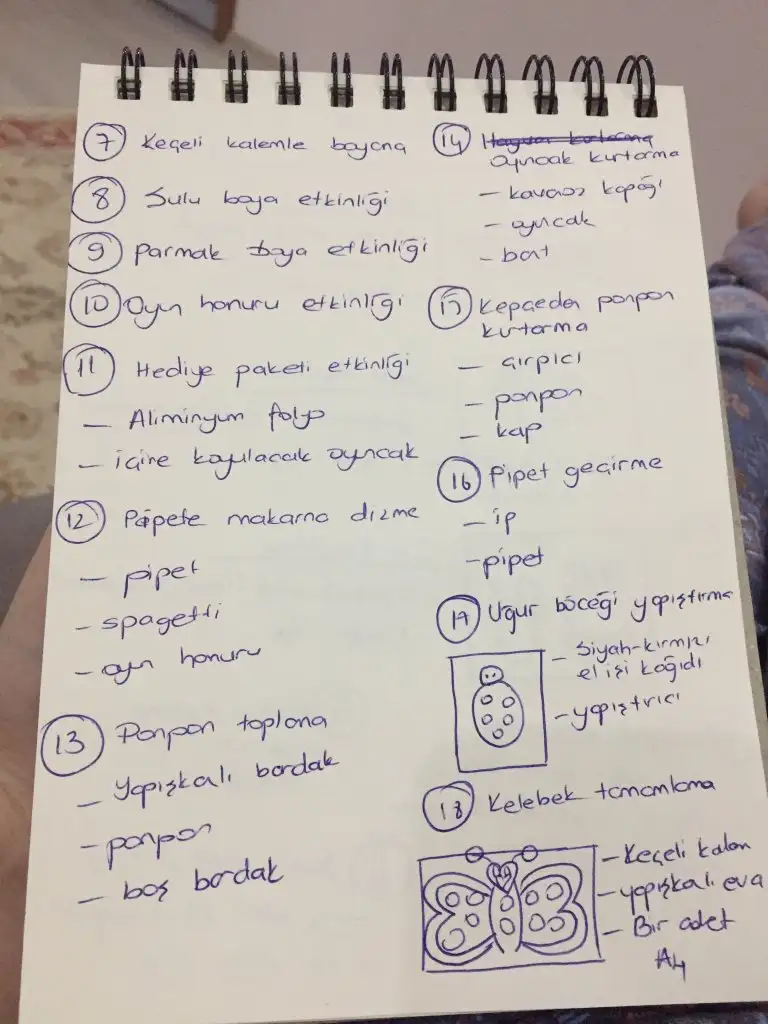 7 Keçeli kalemle boyama
8 Sulu boya etkinliği
9 Parmak boya etkinliği
10 Oyun hamuru etkinliği
11 Hediye paketi etkinliği
— Aliminyum folyo
— içine koyulacak oyuncak
12 Pipete makarna dizme
— pipet
— spagetti
— oyun hamuru
13 Ponpon toplama
— Yapışkalı bardak
— ponpon
— boş bardak
14 Hayvan kurtarma
oyuncak kurtarma
— kavanoz kapağı
— oyucak
— bant
15 Kepçeden ponpon
kurtarma
— çırpıcı
— ponpon
— kap
16 Pipet geçirme
— ip
— pipet
17 Uğur böceği yapıştırma
— Siyah-kırmızı
el işi kağıdı
— yapıştırıcı
18 Kelebek tamamlama
— Keçeli kalem
— yapışkalı eva
— Bir adet
A4